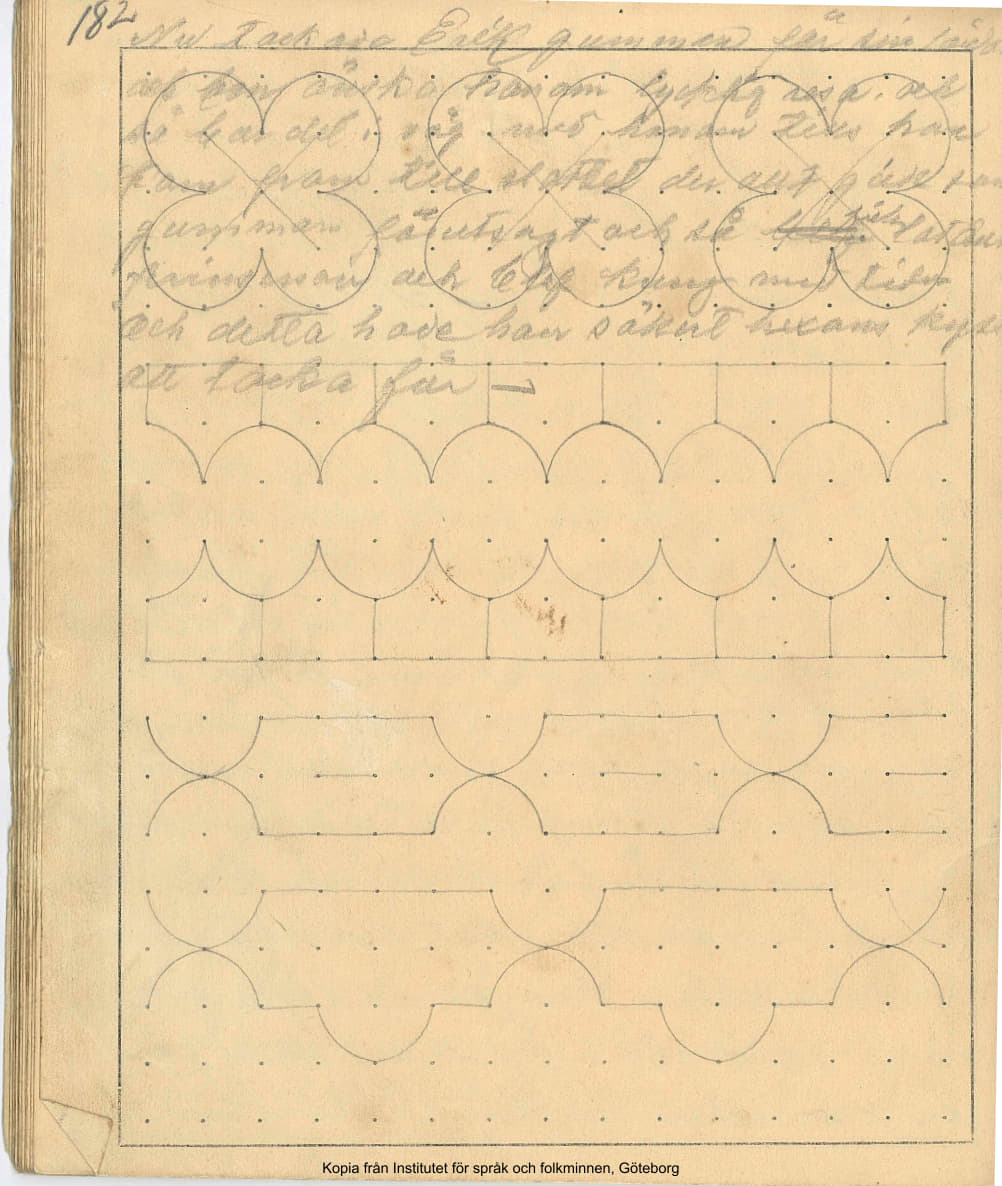 182
Nu tackade Erik gumman för sin
och hon önska honom lycklig resa. och
så bar det i väg med honom tills han
kom fram till slottet der allt gick som
gumman förutsagt och så fick
prinsessan och blef kung med tiden
Och detta hade han säkert hexans
att tacka för —
Kopia från Institutet för språk och folkminnen, Göteborg